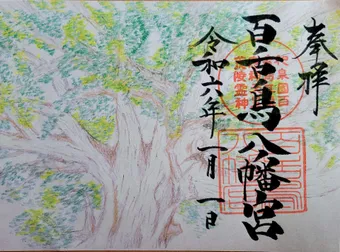 奉拝
百舌鳥八幡宮
令和六年一月一日